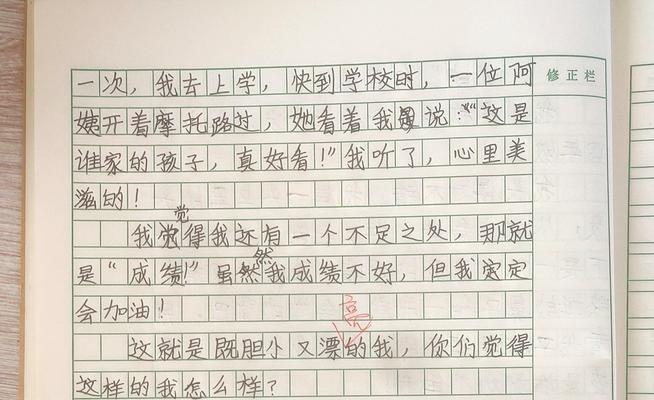 一次，我去上学，快到学校时，一位阿
修正栏
姨开着摩托路过，她看着我说："这是
谁家的孩子，真好看！"我听了，心里美
滋的！
觉
我觉得我还有一个不足之处，那就
然
是"成绩！"虽然我成绩不好，但我定定
会加油！
亮
这就是既胆小又漂的我，你们觉得
这样的我怎么样？